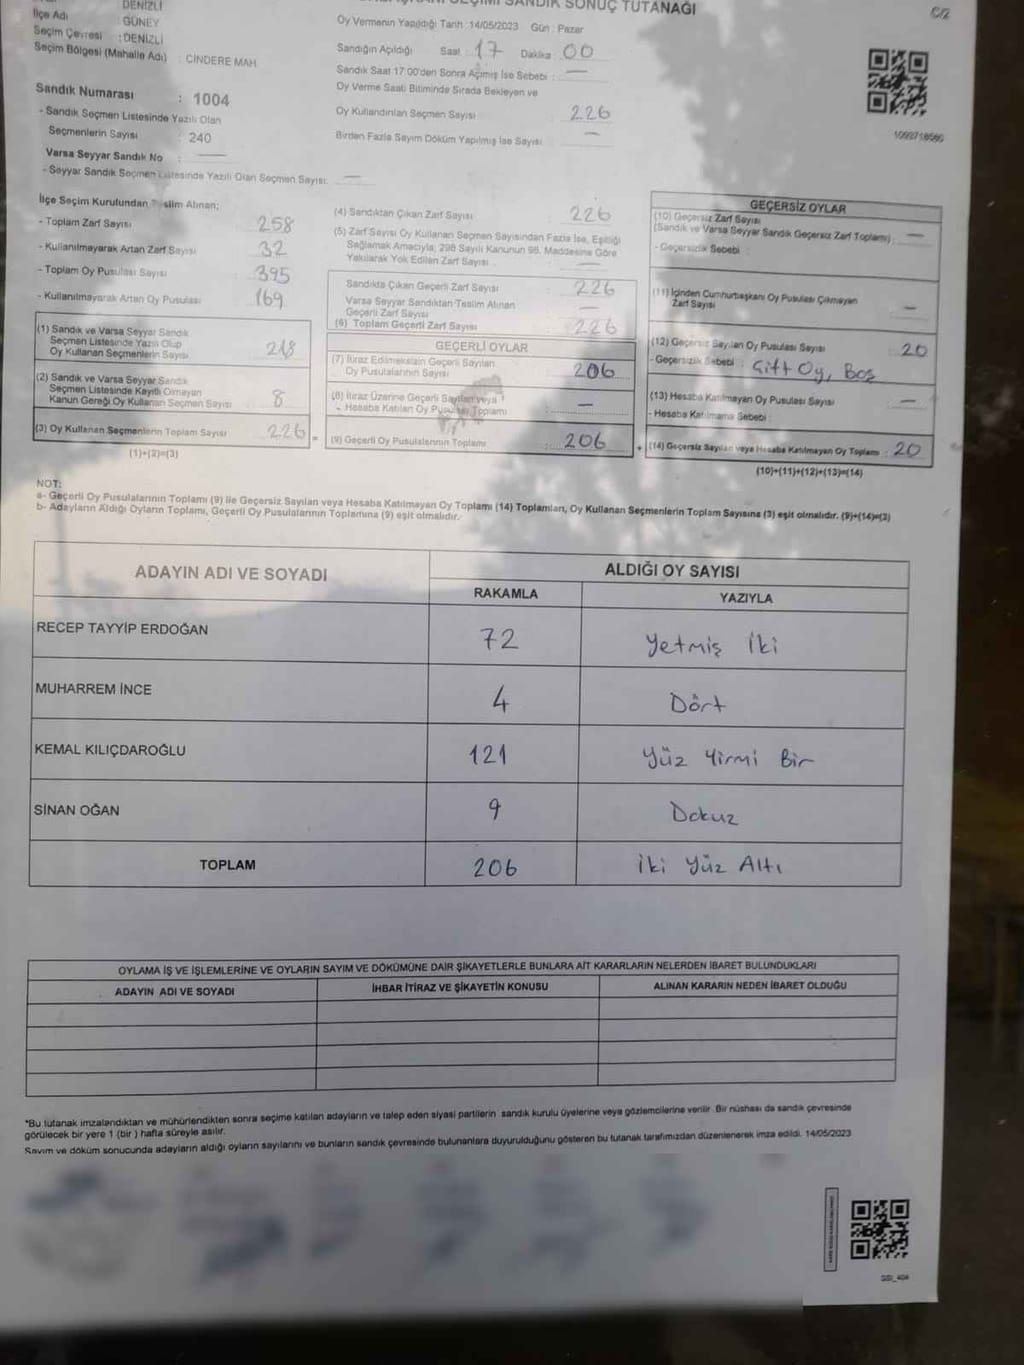 SANDIK SONUÇ TUTANAĞI
C/2
DENİZLİ
İlçe Adı : GÜNEY
Seçim Çevresi : DENİZLİ
Seçim Bölgesi (Mahalle Adı) : CİNDERE MAH
Sandık Numarası : 1004
- Sandık Seçmen Listesinde Yazılı Olan
Seçmenlerin Sayısı : 240
Varsa Seyyar Sandık No : —
- Seyyar Sandık Seçmen Listesinde Yazılı Olan Seçmen Sayısı: —
Oy Vermenin Yapıldığı Tarih :14/05/2023 Gün : Pazar
Sandığın Açıldığı Saat : 17 Dakika : 00
Sandık Saat 17:00'den Sonra Açılmış İse Sebebi : —
Oy Verme Saati Bitiminde Sırada Bekleyen ve
Oy Kullandırılan Seçmen Sayısı : 226
Birden Fazla Sayım Döküm Yapılmış İse Sayısı : —
İlçe Seçim Kurulundan Teslim Alınan;
- Toplam Zarf Sayısı : 258
- Kullanılmayarak Artan Zarf Sayısı : 32
- Toplam Oy Pusulası Sayısı : 395
- Kullanılmayarak Artan Oy Pusulası : 169
(1) Sandık ve Varsa Seyyar Sandık
Seçmen Listesinde Yazılı Olup
Oy Kullanan Seçmenlerin Sayısı : 218
(2) Sandık ve Varsa Seyyar Sandık
Seçmen Listesinde Kayıtlı Olmayan
Kanun Gereği Oy Kullanan Seçmen Sayısı : 8
(3) Oy Kullanan Seçmenlerin Toplam Sayısı : 226 =
(1)+(2)=(3)
(4) Sandıktan Çıkan Zarf Sayısı : 226
(5) Zarf Sayısı Oy Kullanan Seçmen Sayısından Fazla İse, Eşitliği
Sağlamak Amacıyla, 298 Sayılı Kanunun 98. Maddesine Göre
Yakılarak Yok Edilen Zarf Sayısı : —
Sandıkta Çıkan Geçerli Zarf Sayısı : 226
Varsa Seyyar Sandıktan Teslim Alınan
Geçerli Zarf Sayısı : —
(6) Toplam Geçerli Zarf Sayısı : 226
GEÇERLİ OYLAR
(7) İtiraz Edilmeksizin Geçerli Sayılan
Oy Pusulalarının Sayısı : 206
(8) İtiraz Üzerine Geçerli Sayılan veya
Hesaba Katılan Oy Pusulası Toplamı : —
(9) Geçerli Oy Pusulalarının Toplamı : 206 +
GEÇERSİZ OYLAR
(10) Geçersiz Zarf Sayısı
(Sandık ve Varsa Seyyar Sandık Geçersiz Zarf Toplamı) : —
- Geçersizlik Sebebi :
(11) İçinden Cumhurbaşkanı Oy Pusulası Çıkmayan
Zarf Sayısı : —
(12) Geçersiz Sayılan Oy Pusulası Sayısı : 20
- Geçersizlik Sebebi : Çift Oy, Boş
(13) Hesaba Katılmayan Oy Pusulası Sayısı : —
- Hesaba Katılmama Sebebi :
(14) Geçersiz Sayılan veya Hesaba Katılmayan Oy Toplamı : 20
(10)+(11)+(12)+(13)=(14)
NOT:
a- Geçerli Oy Pusulalarının Toplamı (9) ile Geçersiz Sayılan veya Hesaba Katılmayan Oy Toplamı (14) Toplamları, Oy Kullanan Seçmenlerin Toplam Sayısına (3) eşit olmalıdır. (9)+(14)=(3)
b- Adayların Aldığı Oyların Toplamı, Geçerli Oy Pusulalarının Toplamına (9) eşit olmalıdır.
ADAYIN ADI VE SOYADI
ALDIĞI OY SAYISI
RAKAMLA YAZIYLA
RECEP TAYYİP ERDOĞAN 72 Yetmiş İki
MUHARREM İNCE 4 Dört
KEMAL KILIÇDAROĞLU 121 Yüz Yirmi Bir
SİNAN OĞAN 9 Dokuz
TOPLAM 206 İki Yüz Altı
OYLAMA İŞ VE İŞLEMLERİNE VE OYLARIN SAYIM VE DÖKÜMÜNE DAİR ŞİKAYETLERLE BUNLARA AİT KARARLARIN NELERDEN İBARET BULUNDUKLARI
ADAYIN ADI VE SOYADI İHBAR İTİRAZ VE ŞİKAYETİN KONUSU ALINAN KARARIN NEDEN İBARET OLDUĞU
*Bu tutanak imzalandıktan ve mühürlendikten sonra seçime katılan adayların ve talep eden siyasi partilerin sandık kurulu üyelerine veya gözlemcilerine verilir. Bir nüshası da sandık çevresinde
görülecek bir yere 1 (bir) hafta süreyle asılır.
Sayım ve döküm sonucunda adayların aldığı oyların sayılarını ve bunların sandık çevresinde bulunanlara duyurulduğunu gösteren bu tutanak tarafımızdan düzenlenerek imza edildi. 14/05/2023